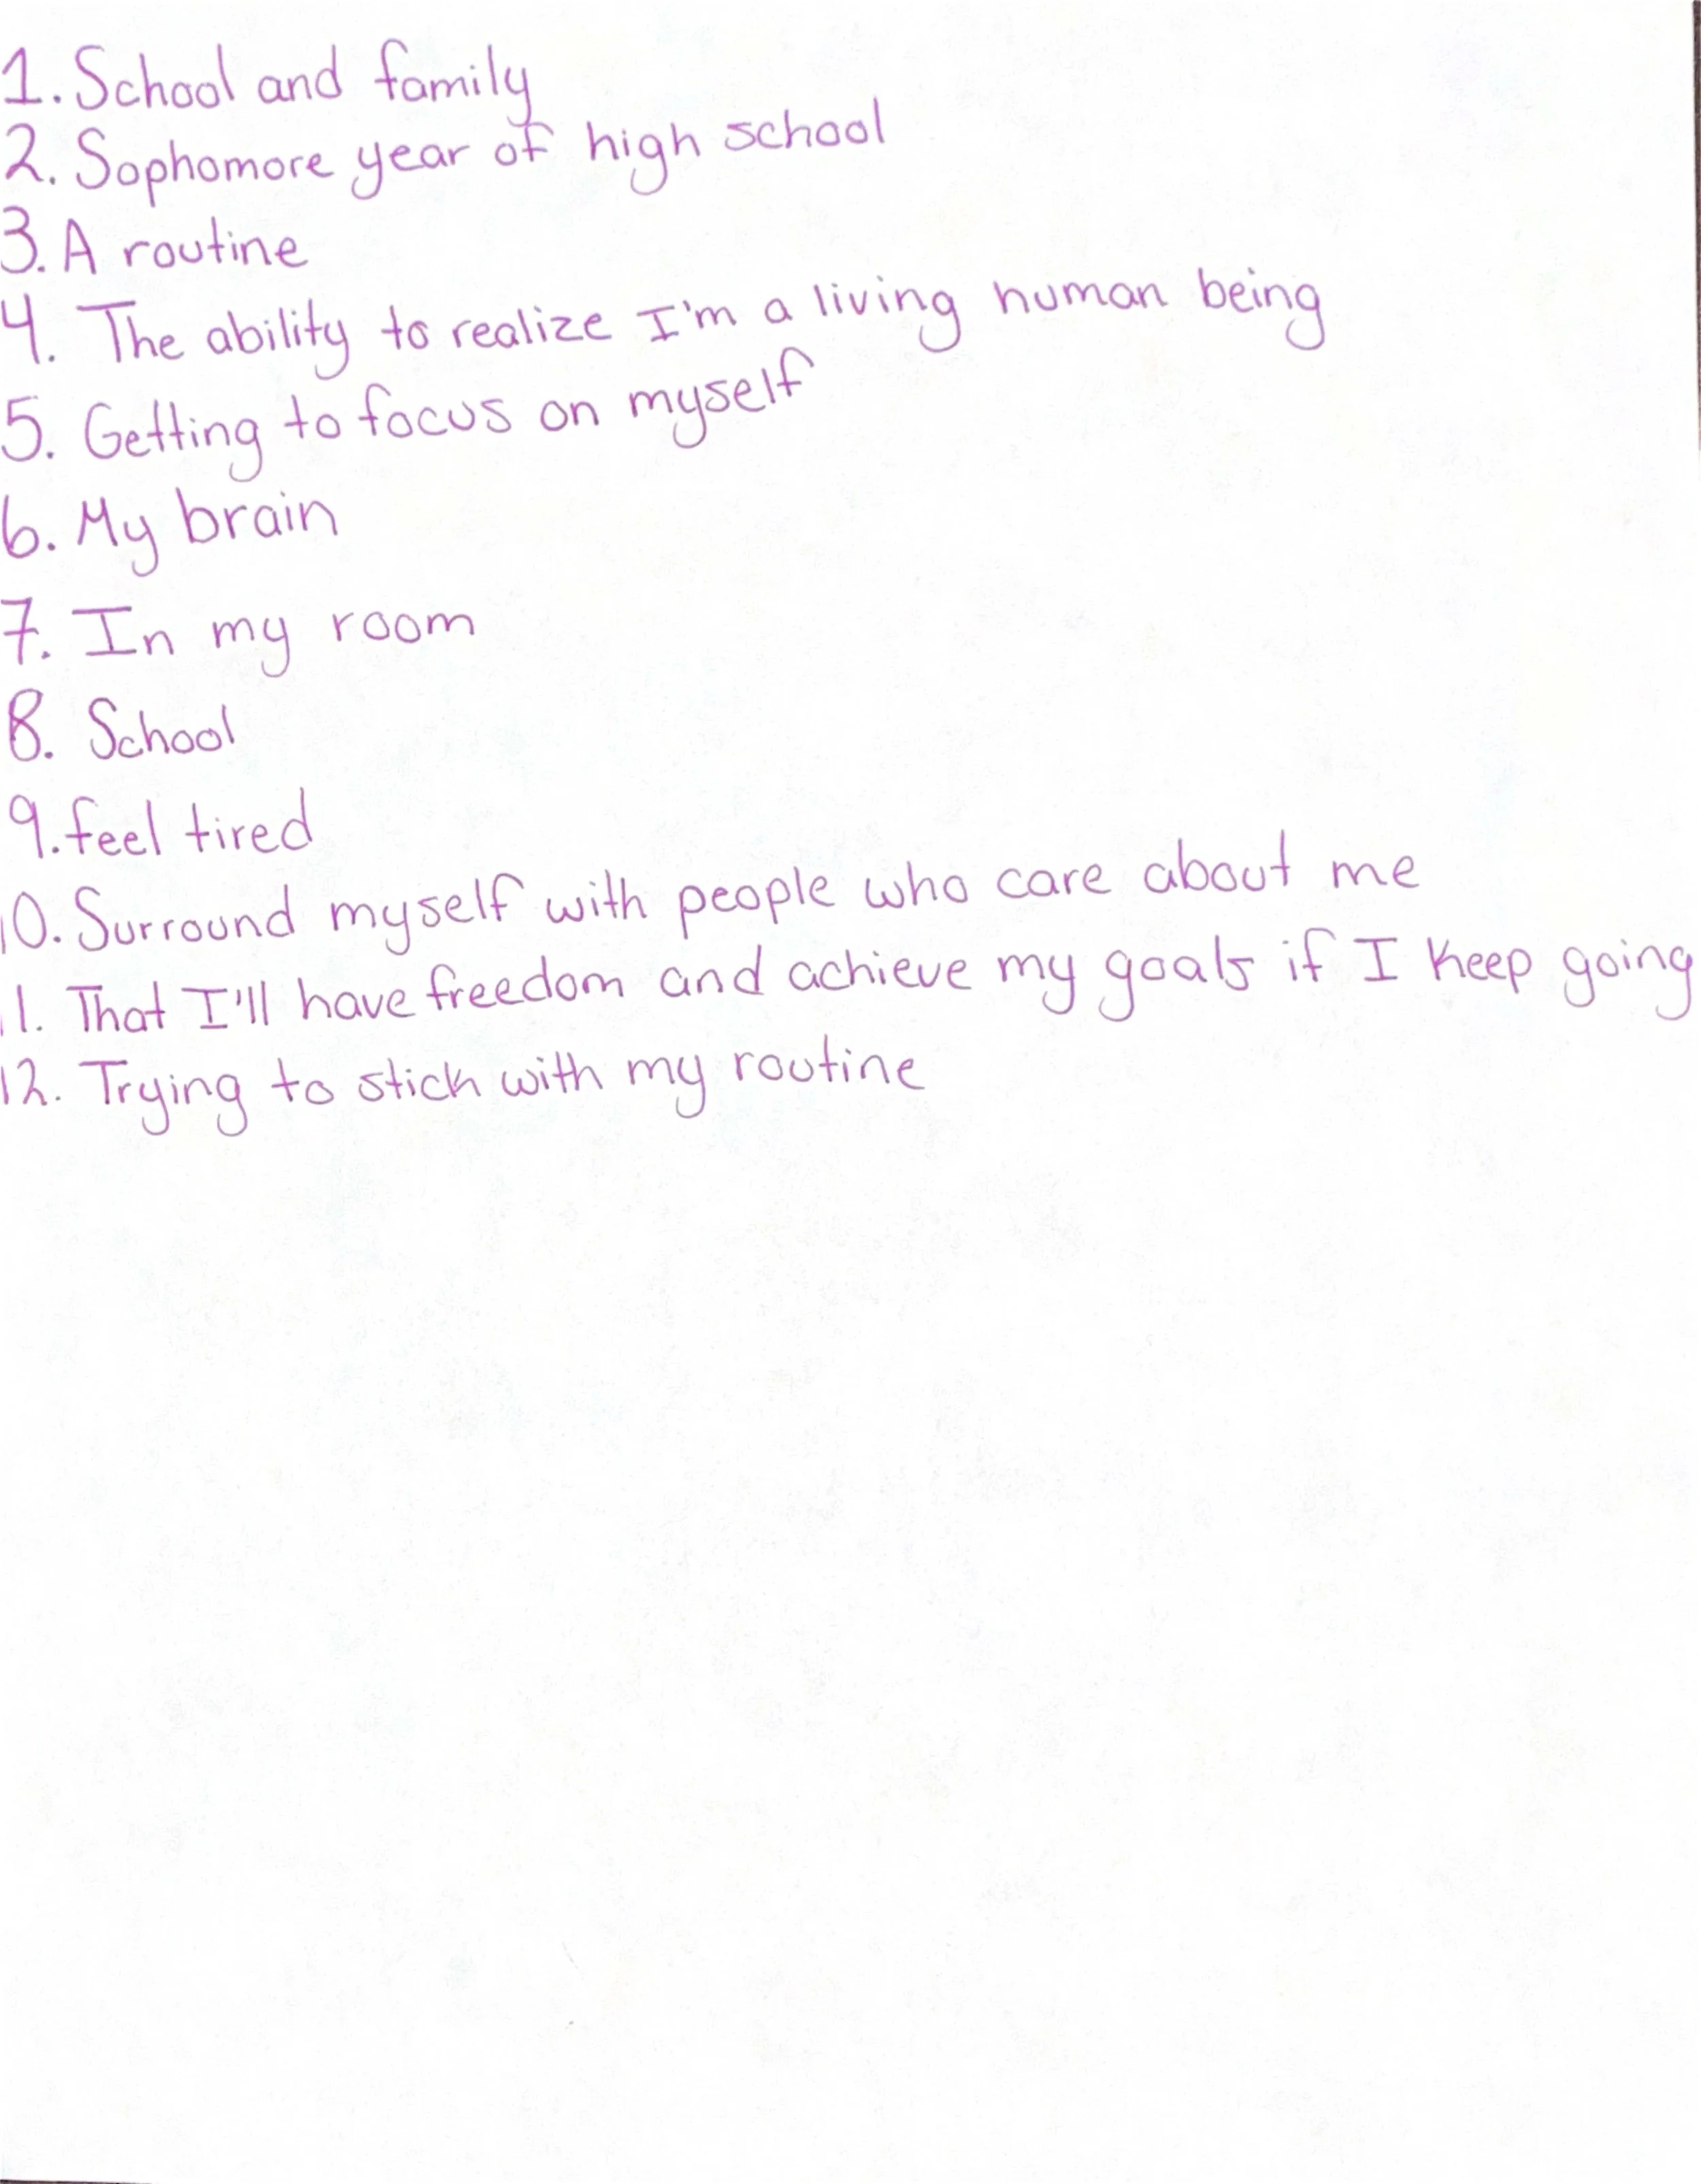 1. School and family
2. Sophomore year of high school
3. A routine
4. The ability to realize I'm a living human being
5. Getting to focus on myself
6. My brain
7. In my room
8. School
9. feel tired
10. Surround myself with people who care about me
11. That I'll have freedom and achieve my goals if I keep going
12. Trying to stick with my routine